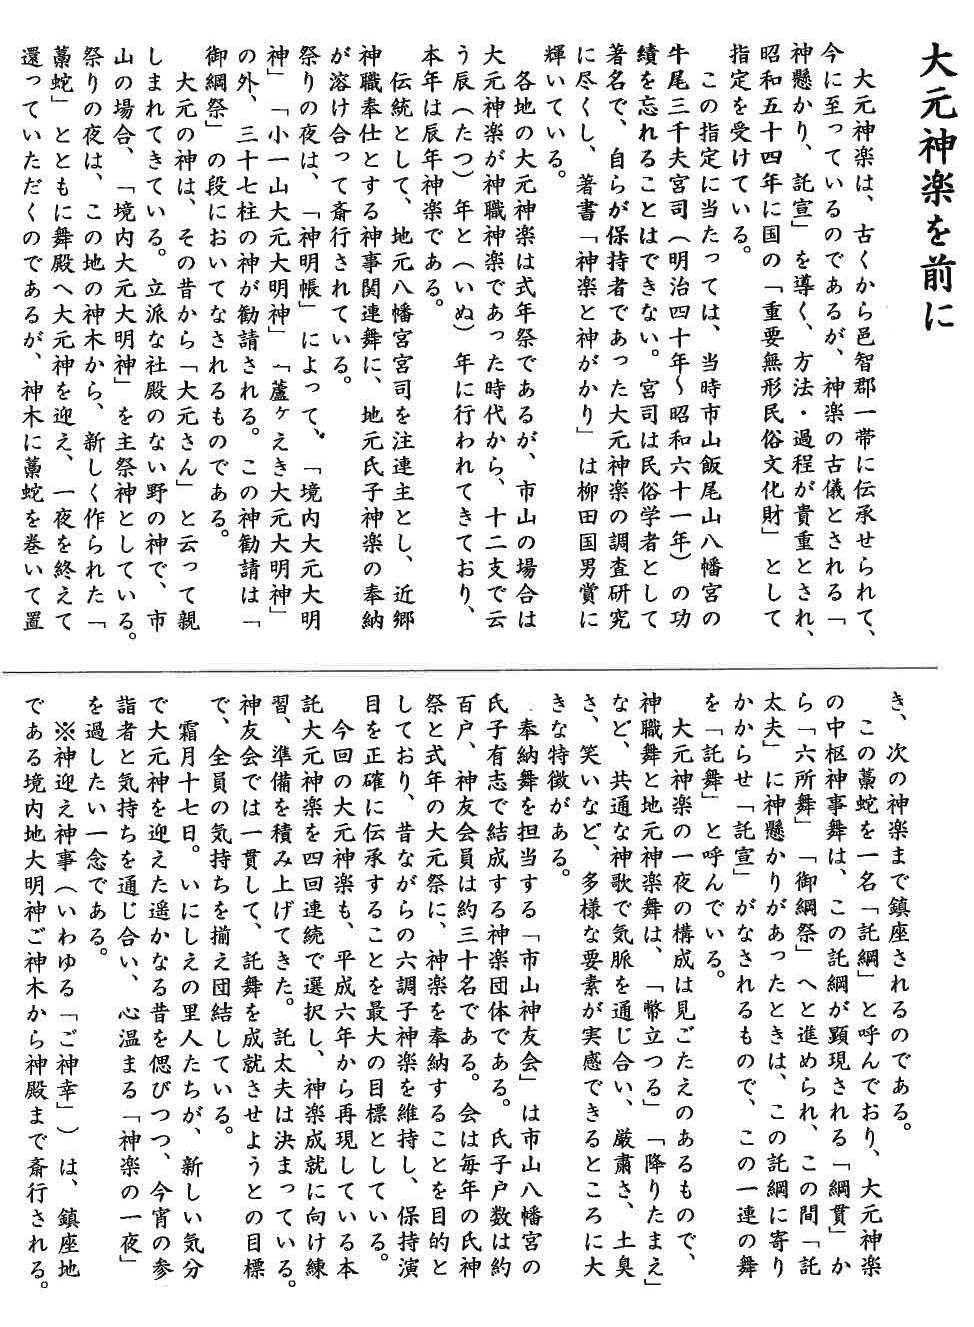 大元神楽を前に
　大元神楽は、古くから邑智郡一帯に伝承せられて、
今に至っているのであるが、神楽の古儀とされる「
神懸かり、託宣」を導く、方法・過程が貴重とされ、
昭和五十四年に国の「重要無形民俗文化財」として
指定を受けている。
　この指定に当たっては、当時市山飯尾山八幡宮の
牛尾三千夫宮司（明治四十年〜昭和六十一年）の功
績を忘れることはできない。宮司は民俗学者として
著名で、自らが保持者であった大元神楽の調査研究
に尽くし、著書「神楽と神がかり」は柳田国男賞に
輝いている。
　各地の大元神楽は式年祭であるが、市山の場合は
大元神楽が神職神楽であった時代から、十二支で云
う辰（たつ）年と（いぬ）年に行われてきており、
本年は辰年神楽である。
　伝統として、地元八幡宮宮司を注連主とし、近郷
神職奉仕とする神事関連舞に、地元氏子神楽の奉納
が溶け合って斎行されている。
祭りの夜は、「神明帳」によって、「境内大元大明
神」「小一山大元大明神」「蘆ヶえき大元大明神」
の外、三十七柱の神が勧請される。この神勧請は「
御綱祭」の段においてなされるものである。
　大元の神は、その昔から「大元さん」と云って親
しまれてきている。立派な社殿のない野の神で、市
山の場合、「境内大元大明神」を主祭神としている。
祭りの夜は、この地の神木から、新しく作られた「
藁蛇」とともに舞殿へ大元神を迎え、一夜を終えて
還っていただくのであるが、神木に藁蛇を巻いて置
き、次の神楽まで鎮座されるのである。
　この藁蛇を一名「託綱」と呼んでおり、大元神楽
の中枢神事舞は、この託綱が顕現される「綱貫」か
ら「六所舞」「御綱祭」へと進められ、この間「託
太夫」に神懸かりがあったときは、この託綱に寄り
かからせ「託宣」がなされるもので、この一連の舞
を「託舞」と呼んでいる。
　大元神楽の一夜の構成は見ごたえのあるもので、
神職舞と地元神楽舞は、「幣立つる」「降りたまえ」
など、共通な神歌で気脈を通じ合い、厳粛さ、土臭
さ、笑いなど、多様な要素が実感できるところに大
きな特徴がある。
　奉納舞を担当する「市山神友会」は市山八幡宮の
氏子有志で結成する神楽団体である。氏子戸数は約
百戸、神友会員は約三十名である。会は毎年の氏神
祭と式年の大元祭に、神楽を奉納することを目的と
しており、昔ながらの六調子神楽を維持し、保持演
目を正確に伝承することを最大の目標としている。
　今回の大元神楽も、平成六年から再現している本
託大元神楽を四回連続で選択し、神楽成就に向け練
習、準備を積み上げてきた。託太夫は決まっている。
神友会では一貫して、託舞を成就させようとの目標
で、全員の気持ちを揃え団結している。
　霜月十七日。いにしえの里人たちが、新しい気分
で大元神を迎えた遥かなる昔を偲びつつ、今宵の参
詣者と気持ちを通じ合い、心温まる「神楽の一夜」
を過したい一念である。
　※神迎え神事（いわゆる「ご神幸」）は、鎮座地
である境内地大明神ご神木から神殿まで斎行される。